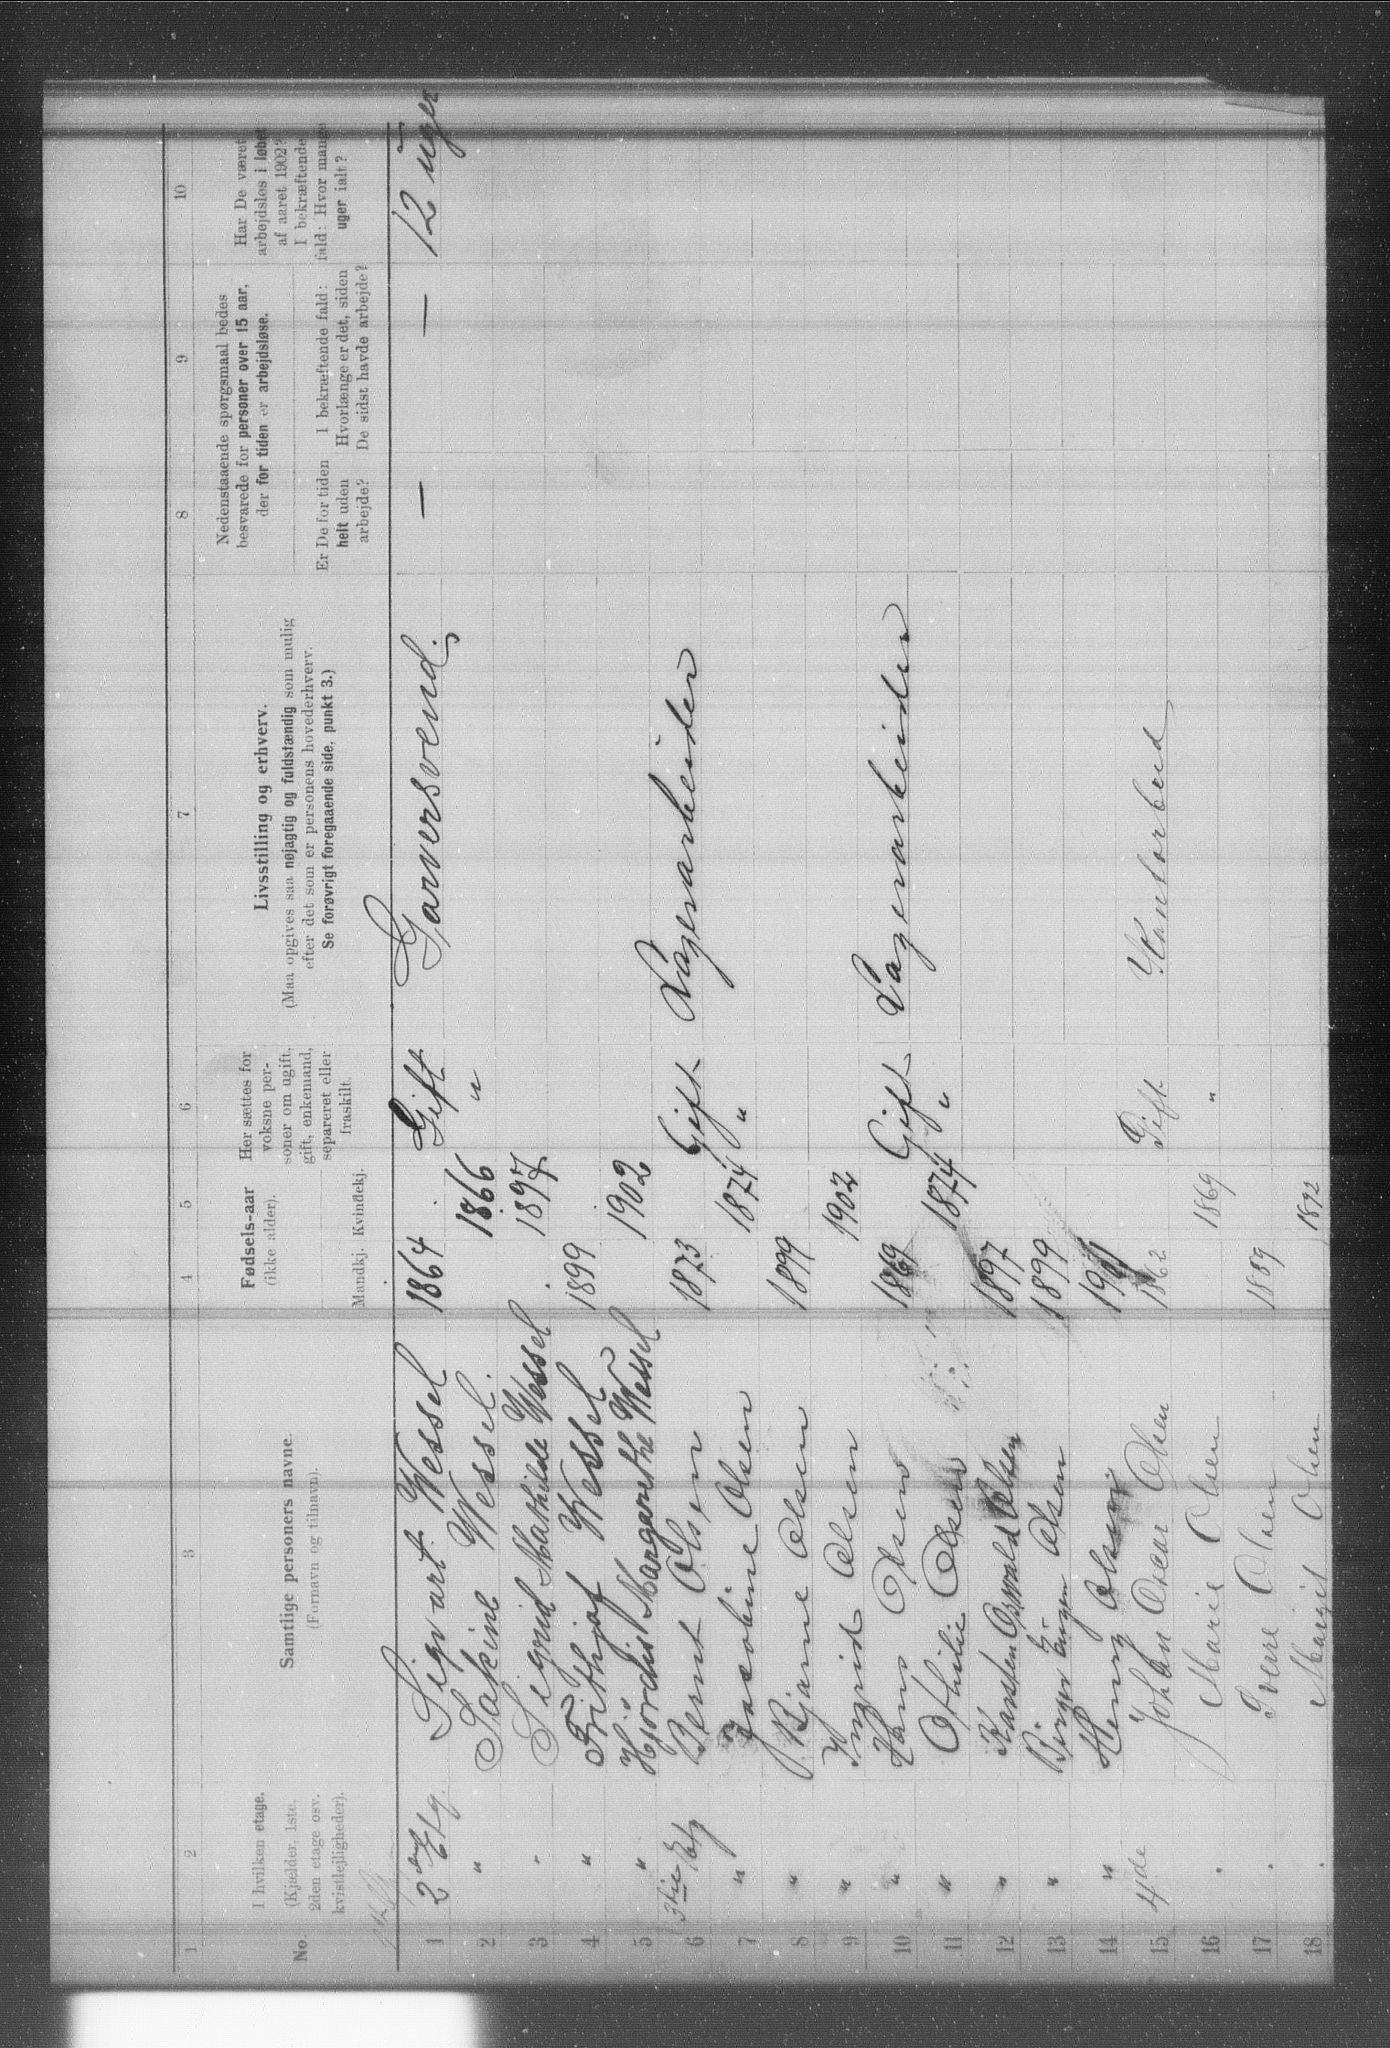 1 2 3 4 5 6 7 8 9 10
No.
I hvilken etage.
(Kjælder, 1ste,
2den etage osv.
kvistlejligheder).
Samtlige personers navne.
(Fornavn og tilnavn).
Fødsels-aar
(ikke alder).
Mandkj. Kvindekj.
Her sættes for
voksne per-
soner om ugift,
gift, enkemand,
separeret eller
fraskilt.
Livsstilling og erhverv.
(Maa opgives saa nøjagtig og fuldstændig som mulig
efter det som er personens hovederhverv.
Se forøvrigt foregaaende side, punkt 3.)
Nedenstaaende spørgsmaal bedes
besvarede for personer over 15 aar,
der for tiden er arbejdsløse.
Er De for tiden
helt uden
arbejde?
I bekræftende fald:
Hvorlænge er det, siden
De sidst havde arbejde?
Har De været
arbejdsløs i løbet
af aaret 1902?
I bekræftende
fald: Hvor mange
uger ialt?
1 2den Etg. Sigvart Wessel 1864 Gift Garversvend. — — 12 uger
2 " Sakine Wessel. 1866 "
3 " Sigrid Mathilde Wessel 1897
4 " Frithjof Wessel 1899
5 " Hjördis Margarethe Wessel 1902
6 3die Etg Bernt Olsen 1873 Gift Lagerarbeider
7 " Jacobine Olsen 1874 "
8 " Bjarne Olsen 1899
9 " Ingrid Olsen 1902
10 " Hans Olsen 1869 Gift Lagerarbeider
11 " Othilie Olsen 1874 "
12 " Karsten Osvald Olsen 1897
13 " Birger Eugen Olsen 1899
14 " Henry Olsen 1901
15 4de Johan Oscar Olsen 1862 Gift Kontorbud
16 . Marie Olsen 1869 "
17 . Sverre Olsen 1889
18 . Margit Olsen 1892